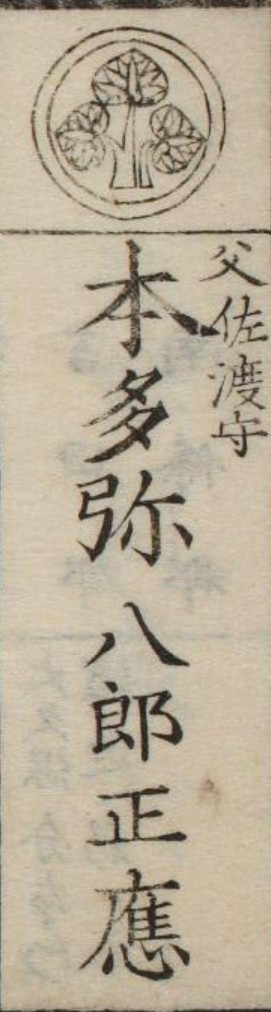 父佐渡守
本多弥八郎正應